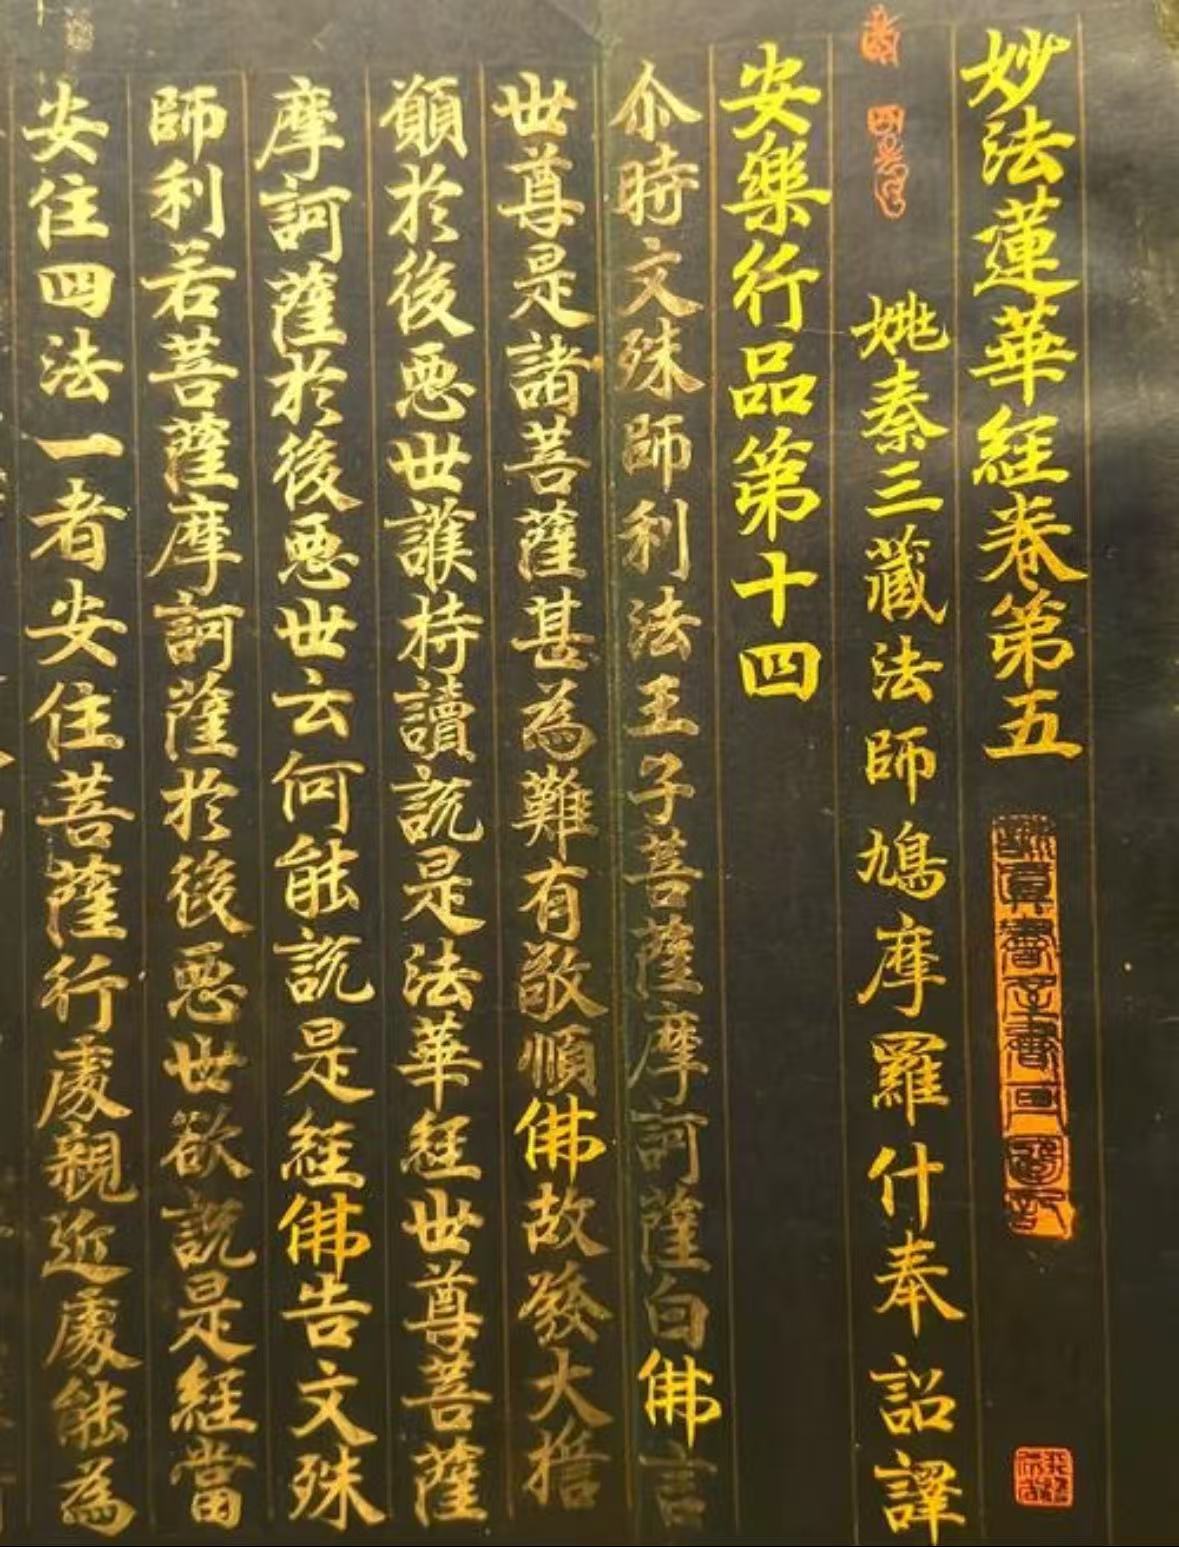 妙法蓮華経卷第五
姚秦三藏法師鳩摩羅什奉詔譯
安樂行品第十四
尒時文殊師利法王子菩薩摩訶薩白佛言
世尊是諸菩薩甚為難有敬順佛故發大擔
願於後惡世護持讀說是法華経世尊菩薩
摩訶薩於後惡世云何能說是経佛告文殊
師利若菩薩摩訶薩於後惡世欲說是経當
安住四法一者安住菩薩行處親近處能為